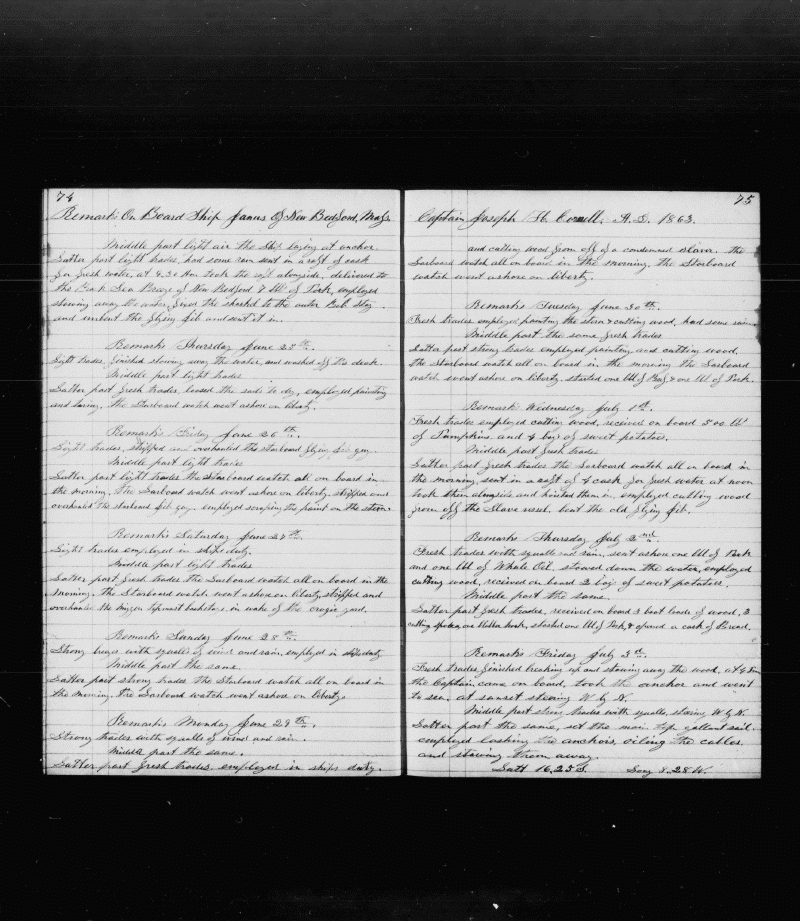 74
Remarks On Board Ship Janus Of New Bedford, Mass
Middle part light air the ship laying at anchor.
Latter part light trades, had some rain sent in a raft of cask
for fresh water, at 4.30 Am took the raft alongside, delivered to
the Bark Sea Breeze of New Bedford 7 bbl of Pork, employed
stowing away the water, fixed the to the outer Bob Stay
and unbent the flying jib and sent it in.
Remarks Thursday June 25th.
Light trades, finished stowing away the water, and washed off the deck.
Middle part light trades
Latter part fresh trades, loosed the sails to dry, employed painting
and taring, the Starboard watch went ashore on liberty.
Remarks Friday June 26th.
Light trades, stripped and overhauled the starboard flying jib guy.
Middle part light trades
Latter part light trades the Starboard watch all on board in
the morning, the Larboard watch went ashore on liberty, stripped and
overhauled the starboard jib guy. employed scraping the paint on the stern.
Remarks Saturday June 27th.
Light trades employed in ships duty.
Middle part light trades
Latter part fresh trades the Larboard watch all on board in the
morning. the Starboard watch went ashore on liberty, stripped and
overhauled the mizzen topmast backstays, in wake of the crogic yard.
Remarks Sunday June 28th.
Strong trades with squalls of wind and rain, employed in ships duty
Middle part the same.
Latter part strong trades the Starboard watch all on board in
the morning. the Larboard watch went ashore on liberty.
Remarks Monday June 29th.
Strong trades with squalls of wind and rain.
Middle part the same.
Latter part fresh trades. employed in ships duty.
75
Captain Joseph H. Cornell, A.D. 1863.
and cutting wood from off of a condemned slaver. the
Larboard watch all on board in the morning, the Starboard
watch went ashore on liberty.
Remarks Tuesday June 30th.
Fresh trades employed painting the stern & cutting wood, had some rain
Middle part the same fresh trades
Latter part strong trades employed painting and cutting wood,
the Starboard watch all on board in the morning the Larboard
watch went ashore on liberty started one bbl of Beef & one bbl of Pork.
Remarks Wednesday July 1st.
Fresh trades employed cutting wood, received on board 500 lbs
of Pumpkins, and 4 bags of sweet potatoes.
Middle part fresh trades
Latter part fresh trades the Larboard watch all on board in
the morning, sent in a raft of 4 cask for fresh water at noon
took them alongside and hoisted them in, employed cutting wood
from off the Slave vessel. bent the old flying jib.
Remarks Thursday July 2nd.
Fresh trades with squalls and rain, sent ashore one bbl of Pork
and one bbl of Whale Oil. stowed down the water, employed
cutting wood, received on board 2 bags of sweet potatoes.
Middle part the same.
Latter part fresh trades, received on board 3 boat loads of wood, 3
started one bbl of Pork, & opened a cask of Bread.
Remarks Friday July 3d.
Fresh trades finished breaking up and stowing away the wood, at 4 Pm
the Captain came on board, took the anchor and went
to sea, at sunset steering W by N.
Middle part strong trades with squalls, steering W by N.
Latter part the same, set the main top gallant sail.
employed lashing the anchors, coiling the cables,
and stowing them away.
Latt 16.25 S. Long 8.28 W.